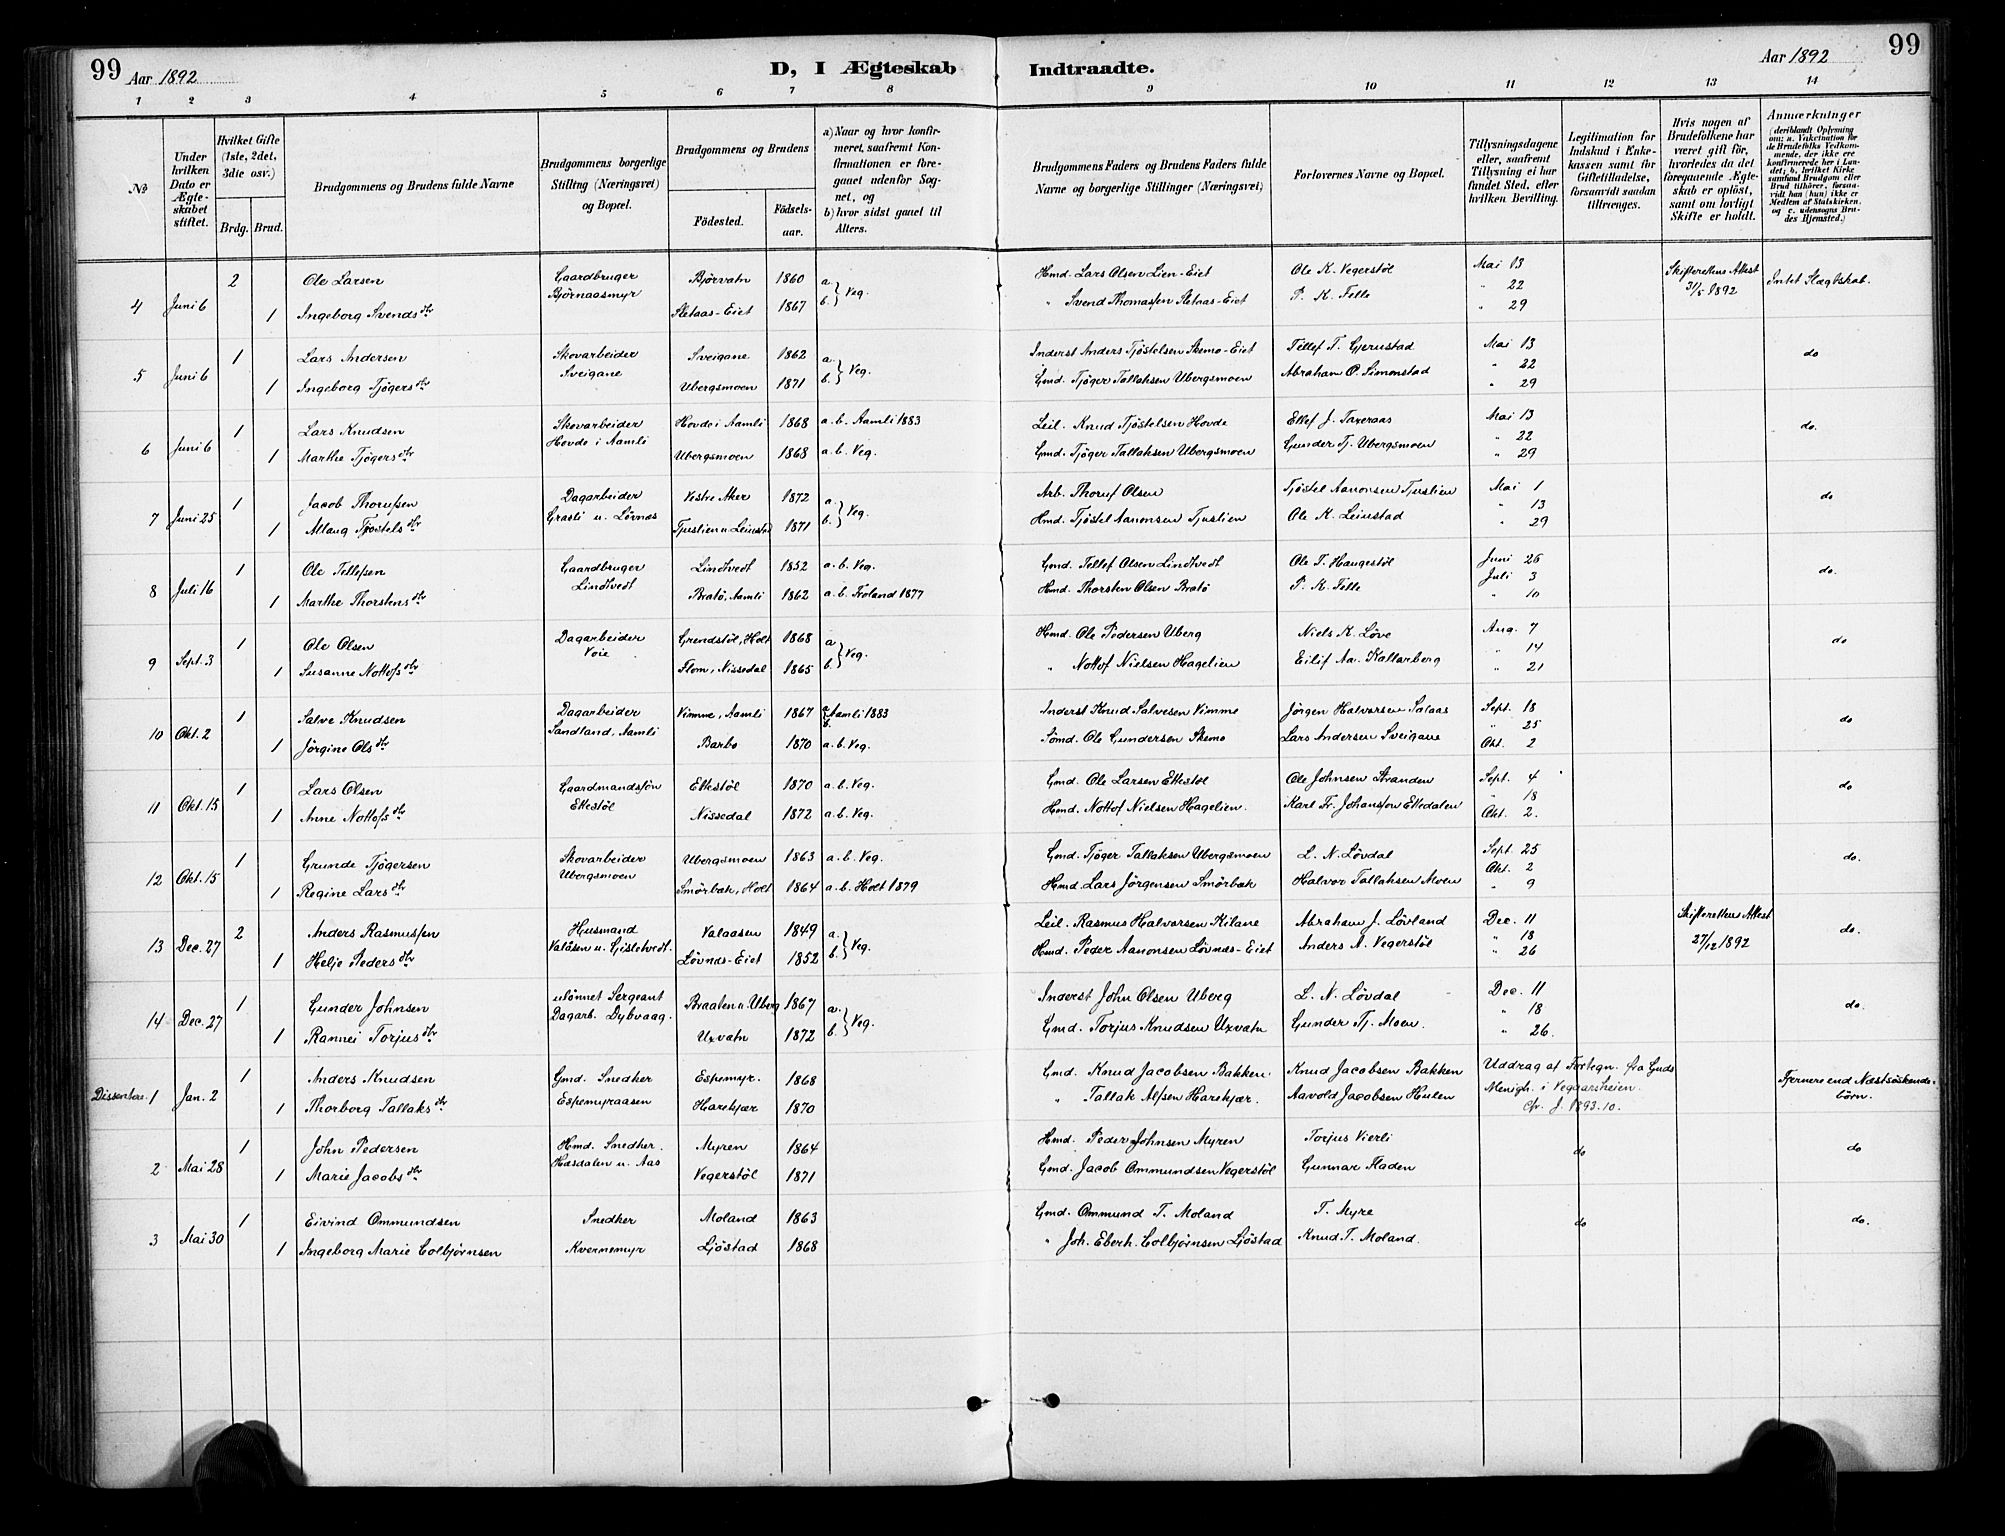 99 Aar 1892 D, I Ægteskab Indtraadte. Aar 1892 99
1 2 3 4 5 6 7 8 9 10 11 12 13 14
№
Under hvilken Dato er Ægteskabet stiftet.
Hvilket Gifte (1ste, 2det, 3die osv.)
Brdg. Brud.
Brudgommens og Brudens fulde Navne
Brudgommens borgerlige Stilling (Næringsvei) og Bopæl.
Brudgommens og Brudens
Födested. Födselsaar.
a) Naar og hvor konfirmeret, saafremt Konfirmationen er foregaaet udenfor Sognet, og
b) hvor sidst gaaet til Alters.
Brudgommens Faders og Brudens Faders fulde Navne og borgerlige Stillinger (Næringsvei)
Forlovernes Navne og Bopæl.
Tillysningsdagene eller, saafremt Tillysning ei har fundet Sted, efter hvilken Bevilling.
Legitimation for Indskud i Enkekassen samt for Giftetilladelse, forsaavidt saadan tiltrænges.
Hvis nogen af Brudefolkene har været gift før, hvorledes da det foregaaende Ægteskab er oplöst, samt om lovligt Skifte er holdt.
Anmærkninger (deriblandt Oplysning om: a. Vakcination for de Brudefolks Vedkommende, der ikke ere konfirmerede her i Landet; b. hvilket Kirkesamfund Brudgom eller Brud tilhörer, forsaavidt han (hun) ikke er Medlem af Statskirken, og c. udensogns Brudes Hjemsted.)
4 Juni 6 2 Ole Larsen Gaardbruger Björnaasmyr Björvatn 1860 a. Hmd. Lars Olsen Lien-Eiet Ole K. Vegerstöl Mai 13 Skifterettens Attest 31/5 1892 Intet Slægtskab.
1 Ingeborg Svendsdtr Sletaas-Eiet 1867 b. Veg. " Svend Thomassen Sletaas-Eiet P. K. Felle " 22 " 29
5 Juni 6 1 Lars Andersen Skovarbeider Sveigane Sveigane 1862 a. Inderst Anders Tjöstelsen Skemo-Eiet Tellef T. Gjerustad Mai 13 do
1 Ingeborg Tjögersdtr Ubergsmoen 1871 b. Veg. Gmd. Tjöger Tallaksen Ubergsmoen Abraham O. Simonstad " 22 " 29
6 Juni 6 1 Lars Knudsen Skovarbeider Hovde i Aamli Hovde i Aamli 1868 a. b. Aamli 1883 Leil. Knud Tjöstelsen Hovde Ellef J. Taxeraas Mai 13 do.
1 Marthe Tjögersdtr Ubergsmoen 1868 a. b. Veg. Gmd. Tjöger Tallaksen Ubergsmoen Gunder Tj. Ubergsmoen " 22 " 29
7 Juni 25 1 Jacob Thorufsen Dagarbeider Grasli u. Lövnæs Vestre Aker 1872 a. Arb. Thoruf Olsen Tjöstel Aanonsen Tjustien Mai 1 do
1 Aslaug Tjöstelsdtr Tjustien u. Leinstad 1871 b. Veg. Hmd. Tjöstel Aanonsen Tjustien Ole K. Leinstad " 13 " 29
8 Juli 16 1 Ole Tellefsen Gaardbruger Lindtvedt Lindtvedt 1852 a. b. Veg. Gmd. Tellef Olsen Lindtvedt Ole T. Haugestöl Juni 26 do.
1 Marthe Thorstensdtr Bratö, Aamli 1862 a. b. Froland 1877 Hmd. Thorsten Olsen Bratö P. K. Felle Juli 3 " 10
9 Sept. 3 1 Ole Olsen Dagarbeider Voie Grendstöl, Holt 1868 a. Hmd. Ole Pedersen Uberg Niels K. Löve Aug. 7 do
1 Susanne Nottofsdtr Flom, Nissedal 1865 b. Veg. " Nottof Nielsen Hagelien Eilif Aa. Kallarberg " 14 " 21
10 Okt. 2 1 Salve Knudsen Dagarbeider Sandland, Aamli Vimme, Aamli 1867 a. b. Aamli 1883 Inderst Knud Salvesen Vimme Jörgen Halvorsen Salaas Sept. 18 do
1 Jörgine Olsdtr Barbo 1870 a. b. Veg. Sömd. Ole Gundersen Skemo Lars Andersen Sveigane " 25 Okt. 2
11 Okt. 15 1 Lars Olsen Gaardmandssön Ettestöl Ettestöl 1870 a. b. Veg. Gmd. Ole Larsen Ettestöl Ole Johnsen Stranden Sept. 4 do
1 Anne Nottofsdtr Nissedal 1872 a. b. Veg. Hmd. Nottof Nielsen Hagelien. Karl Fr. Johansson Ettedalen " 18 Okt. 2.
12 Okt. 15 1 Grunde Tjögersen Skovarbeider Ubergsmoen Ubergsmoen 1863 a. b. Veg. Gmd. Tjöger Tallaksen Ubergsmoen L. N. Lövdal Sept. 25 do.
1 Regine Larsdtr Smörbæk, Holt 1864 a. b. Holt 1879 Hmd. Lars Jörgensen Smörbæk Halvor Tallaksen Moen Okt. 2 " 9
13 Dec. 27 2 Anders Rasmussen Husmand Valåsen u. Gisletvedt. Valaasen 1849 a. Leil. Rasmus Halvorsen Kilane Abraham J. Lövland Dec. 11 Skifterettens Attest 27/12 1892 do.
1 Helje Pedersdtr Lövnæs-Eiet 1852 b. Veg. Hmd. Peder Aanonsen Lövnæs-Eiet Anders A. Vegerstöl " 18 " 26
14 Dec. 27 1 Gunder Johnsen ulönnet Sergeant Dagarb. Dybvaag. Braaten u. Uberg 1867 a. Inderst John Olsen Uberg L. N. Lövdal Dec. 11 do.
1 Rannei Torjusdtr Uxvatn 1872 b. Veg. Gmd. Torjus Knudsen Uxvatn Gunder Tj. Moen. " 18 " 26.
Dissentere. 1 Jan. 2 1 Anders Knudsen Gmd. Snedker Espemyraasen Espemyr. 1868 Gmd. Knud Jacobsen Bakken. Knud Jacobsen Bakken Uddrag af Fortegn. fra Guds Menigh. i Vegaarsheien. cfr. J. 1893.10. Fjernere end Næstsöskendebörn.
1 Thorborg Tallaksdtr Harekjær 1870 " Tallak Alfsen Harekjær. Aavold Jacobsen Hulen
2 Mai 28 1 John Pedersen Hmd. Snedker. Hæsdalen u. Aas Myren 1864 Hmd. Peder Johnsen Myren Torjus Vierli do do
1 Marie Jacobsdtr Vegerstöl 1871 Gmd. Jacob Ommundsen Vegerstöl Gunnar Fladen
3 Mai 30 1 Eivind Ommundsen Snedker Kvernemyr Moland 1863 Gmd. Ommund T. Moland T. Myre do do.
1 Ingeborg Marie Colbjørnsen Ljöstad 1868 " Joh. Eberh. Colbjørnsen Ljöstad Knud T. Moland.